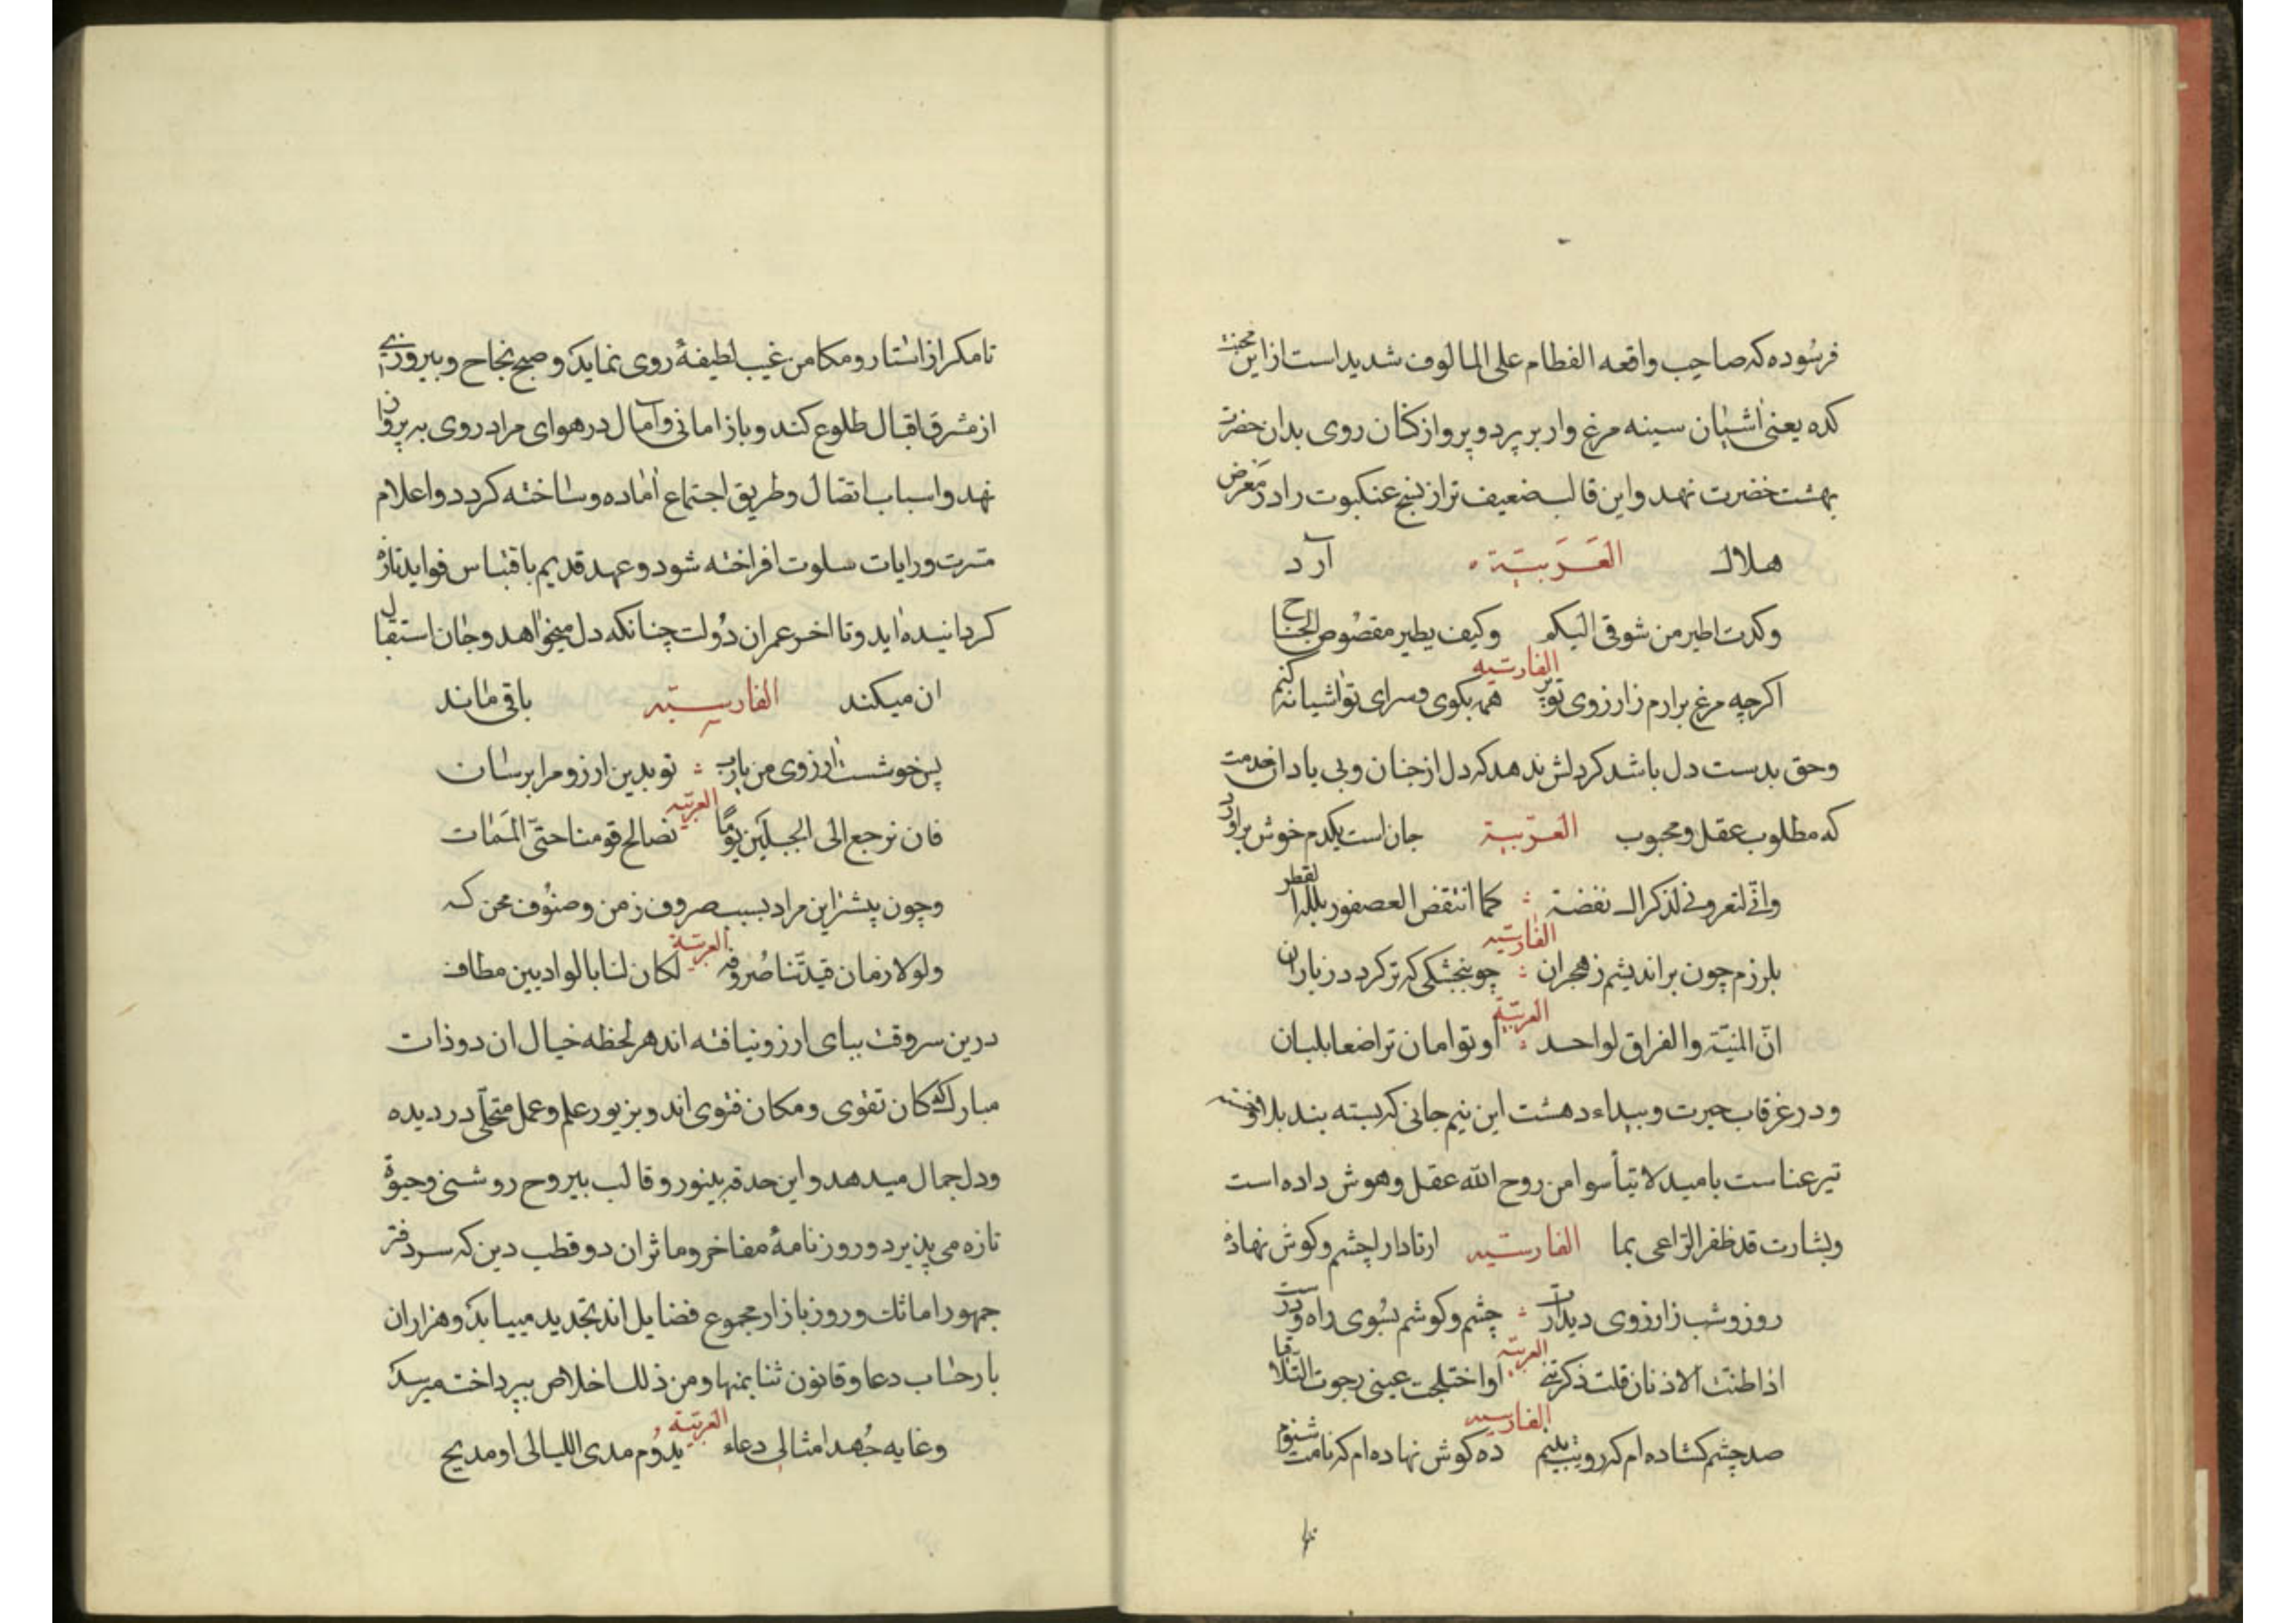 فرسوده که صاحب واقعه الفطام علی المالوف شدید است از این محنت
کده یعنی اشیان سینه مرغ وار بر پرد و پرواز کنان روی بدان حضرت
بهشت خضرت نهد و این قالب ضعیف تر از نسج عنکبوت را در معرض
هلاك العَرَبیّة آرد
وکدت اطیر من شوقی الیکم وکیف یطیر مقصُوص الجناح
الفارسیه
اکرچه مرغ برارم ز ارزوی تو پر همه بکوی و سرای تو اشیانه کنم
وحق بدست دل باشد کر دلش ندهد که دل از جنان و بی یاد ان خدمت
که مطلوب عقل و محبوب العربیة جان است یکدم خوش براورد
وانّی لتعرونی لذکراك نفضة کما انتفض العصفور بلله القطر
الفارسیه
بلرزم چون براندیشم ز هجران چو بنجشکی که تر کردد ز باران
العربیّة
انّ المنیّة والفراق لواحد او توامان تراضعا بلبان
ودر غرقاب حیرت و بیداء دهشت این نیم جانی که بسته بند بلا و
تیر عناست بامید لا تیأسوا من روح الله عقل وهوش داده است
وبشارت قد ظفر الرّاعی بما الفارسیه ارتاد را چشم و کوش نهاده
روز و شب ز ارزوی دیدارت چشم و کوشم بسُوی راه و درست
العربیّه
اذا طنت الاذنان قلت ذکرتنی او اختلجت عینی رجوت التّلاقیا
الفارسیه
صد چشم کشاده ام که رویت بینم ده کوش نهاده ام که نامت شنوم
تا مکر از استار و مکامن غیب لطیفهٔ روی نماید و صبح نجاح و پیروزی
از مشرق اقبال طلوع کند و باز امانی و آمال در هوای مراد روی به پروان
نهد و اسباب اتصال و طریق اجتماع اماده و ساخته کردد و اعلام
مسرت و رایات سلوت افراخته شود و عهد قدیم باقتباس فواید تازه
کردانیده اید و تا اخر عمر ان دُولت چنانکه دل میخواهد و جان استقبال
ان میکند الفارسیّه باقی ماند
بس خوشست ارزوی من یارب تو بدین ارزو مرا برسان
العربیّه
فان نرجع الی الجبلَین یومًا نصالح قومنا حتّی المَمات
وچون پیشتر این مراد بسبب صروف زمن و صنُوف محن که
العربیّة
ولولا زمان قیدتنا صُروفه لکان لنا بالوادیین مطاف
درین سر وقت بپای ارزو نیافته اند هر لحظه خیال ان دو ذات
مبارك که کان تقوی و مکان فتوی اند و بزیور علم و عمل متحلّی در دیده
ودل جمال میدهد و این حدقه بینور و قالب بیروح روشنی و حیوة
تازه می پذیرد و روزنامهٔ مفاخر و ماثر ان دو قطب دین که سر دفتر
جمهور اماثل و روز بازار مجموع فضایل اند تجدید مییابد و هزاران
بار حساب دعا و قانون ثنا بمنها و من ذلك اخلاص بپرداخت میرسد
العربیّة
وغایه جُهد امثالی دعاء یدُوم مدی اللیالی او مدیح